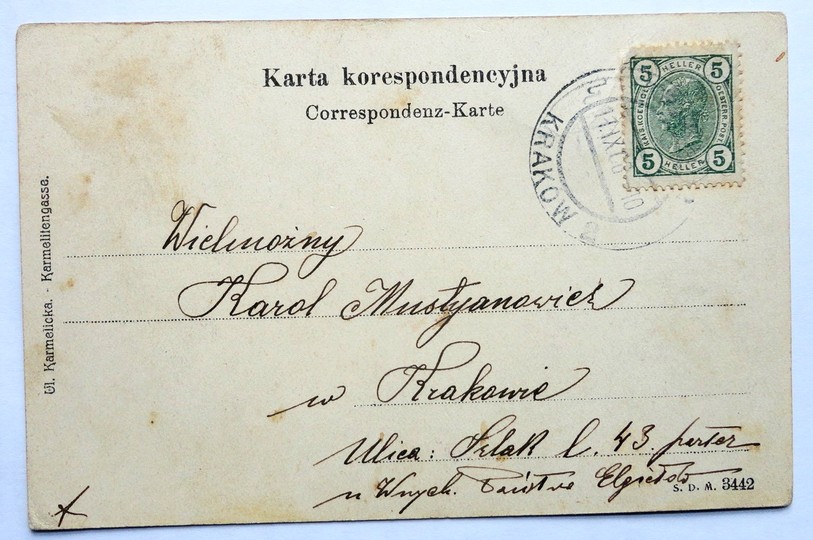 Karta korespondencyjna
Correspondenz-Karte
5 HELLER 5
5 HELLER 5
KRAKOW
Ul. Karmelicka. - Karmelitengasse.
Wielmożny
Karol Mustyanowicz
w Krakowie
Ulica: Szlak l. 43 parter
u Wnych. Państwa
S. D. M. 3442